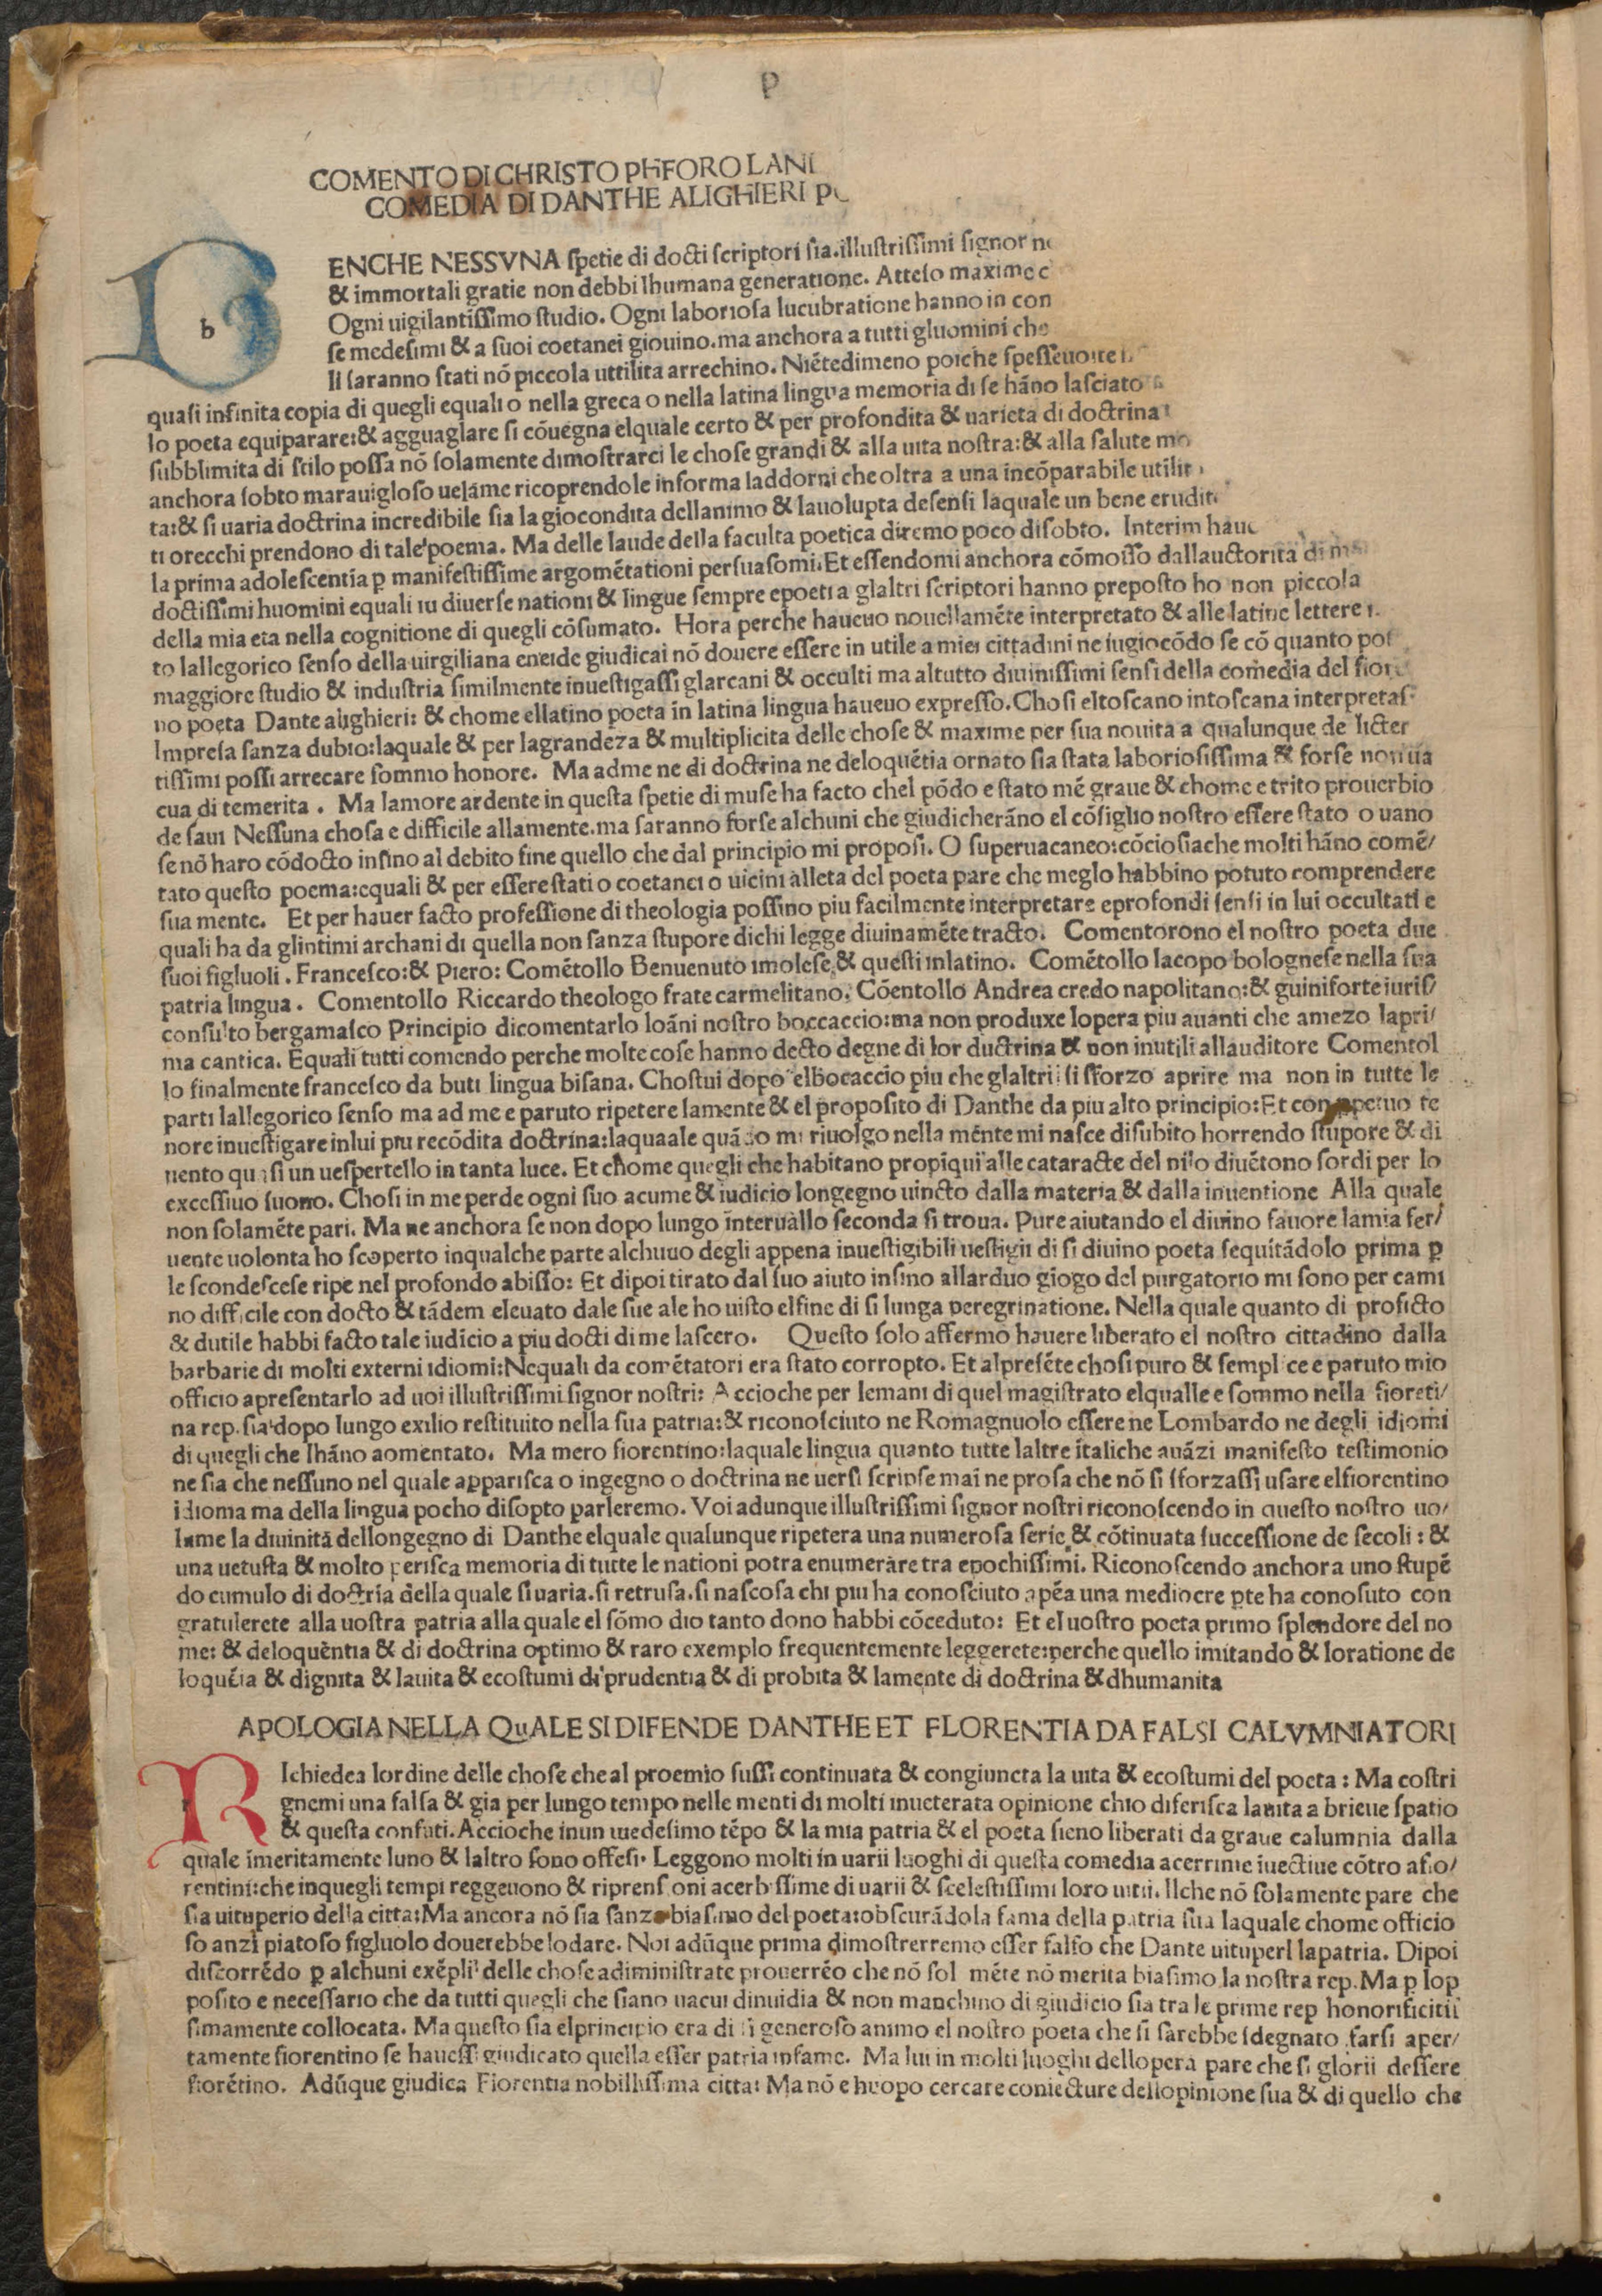 P
COMENTO DI CHRISTO PHFORO LANI
COMEDIA DI DANTHE ALIGHIERI
b
BENCHE NESSVNA ſpetie di docti ſcriptori ſia.illuſtriſſimi ſignor
& immortali gratie non debbi lhumana generatione. Atteſo maxime
Ogni uigilantiſſimo ſtudio. Ogni laborioſa lucubratione hanno in con
ſe medeſimi & a ſuoi coetanei giouino.ma anchora a tutti gluomini che
li ſaranno ſtati nõ piccola uttilita arrechino. Niẽtedimeno poiche
quaſi infinita copia di quegli equali o nella greca o nella latina lingua memoria di ſe hãno laſciato
lo poeta equiparare:& agguaglare ſi cõuegna elquale certo & per profondita & uarieta di doctrina
ſubblimita di ſtilo poſſa nõ ſolamente dimoſtrarci le choſe grandi & alla uita noſtra:& alla ſalute mo
anchora ſobto marauigloſo uelãme ricoprendole informa laddorni che oltra a una incõparabile utilit
ta:& ſi uaria doctrina incredibile ſia la giocondita dellanimo & lauolupta deſenſi laquale un bene erudit
ti orecchi prendono di tale poema. Ma delle laude della faculta poetica diremo poco diſobto. Interim
la prima adoleſcentia ꝑ manifeſtiſſime argomẽtationi perſuaſomi.Et eſſendomi anchora cõmoſſo dallauctorita di
doctiſſimi huomini equali iu diuerſe nationi & lingue ſempre epoeti a glaltri ſcriptori hanno prepoſto ho non piccola
della mia eta nella cognitione di quegli cõſumato. Hora perche haueuo nouellamẽte interpretato & alle latine lettere
to lallegorico ſenſo della uirgiliana eneide giudicai nõ douere eſſere in utile a miei cittadini ne iugiocõdo ſe cõ quanto
maggiore ſtudio & induſtria ſimilmente inueſtigaſſi glarcani & occulti ma altutto diuiniſſimi ſenſi della comedia del
no poeta Dante alighieri: & chome ellatino poeta in latina lingua haueuo expreſſo.Choſi eltoſcano intoſcana interpretaſ
Impreſa ſanza dubio:laquale & per lagrandeza & multiplicita delle choſe & maxime per ſua nouita a qualunque de licter
tiſſimi poſſi arrecare ſommo honore. Ma adme ne di doctrina ne deloquẽtia ornato ſia ſtata laborioſiſſima & forſe non ua
cua di temerita . Ma lamore ardente in queſta ſpetie di muſe ha facto chel põdo e ſtato mẽ graue & chome e trito prouerbio
de ſaui Neſſuna choſa e difficile allamente.ma ſaranno forſe alchuni che giudicherãno el cõſiglio noſtro eſſere ſtato o uano
ſe nõ haro cõdocto inſino al debito fine quello che dal principio mi propoſi. O ſuperuacaneo:cõcioſiache molti hãno comẽ/
tato queſto poema:equali & per eſſere ſtati o coetanei o uicini alleta del poeta pare che meglo habbino potuto comprendere
ſua mente. Et per hauer facto profeſſione di theologia poſſino piu facilmente interpretare eprofondi ſenſi in lui occultati e
quali ha da glintimi archani di quella non ſanza ſtupore dichi legge diuinamẽte tracto. Comentorono el noſtro poeta due
ſuoi figluoli . Franceſco:& Piero: Comẽtollo Benuenuto imoleſe.& queſti inlatino. Comẽtollo Iacopo bologneſe nella ſua
patria lingua . Comentollo Riccardo theologo frate carmelitano. Cõentollo Andrea credo napolitano:& guiniforte iuriſ/
conſulto bergamaſco Principio dicomentarlo Ioãni noſtro boccaccio:ma non produxe lopera piu auanti che amezo lapri/
ma cantica. Equali tutti comendo perche molte coſe hanno decto degne di lor ductrina & non inutili allauditore Comentol
lo finalmente franceſco da buti lingua biſana. Choſtui dopo elbocaccio piu che glaltri ſi ſforzo aprire ma non in tutte le
parti lallegorico ſenſo ma ad me e paruto ripetere lamente & el propoſito di Danthe da piu alto principio:Et con te
nore inueſtigare inlui piu recõdita doctrina:laquaale quãdo mi riuolgo nella mẽnte mi naſce diſubito horrendo ſtupore & di
uento quaſi un ueſpertello in tanta luce. Et chome quegli che habitano propiqui alle cataracte del nilo diuẽtono ſordi per lo
exceſſiuo ſuono. Choſi in me perde ogni ſuo acume & iudicio longegno uincto dalla materia & dalla inuentione Alla quale
non ſolamẽte pari. Ma ne anchora ſe non dopo lungo interuallo ſeconda ſi troua. Pure aiutando el diuino fauore lamia fer/
uente uolonta ho ſcoperto inqualche parte alchuuo degli appena inueſtigibili ueſtigii di ſi diuino poeta ſequitãdolo prima ꝑ
le ſcondeſceſe ripe nel profondo abiſſo: Et dipoi tirato dal ſuo aiuto inſino allarduo giogo del purgatorio mi ſono per cami
no difficile con docto & tãdem eleuato dale ſue ale ho uiſto elfine di ſi lunga peregrinatione. Nella quale quanto di proficto
& dutile habbi facto tale iudicio a piu docti di me laſcero. Queſto ſolo affermo hauere liberato el noſtro cittadino dalla
barbarie di molti externi idiomi:Nequali da comẽtatori era ſtato corropto. Et alpreſẽte choſi puro & ſemplice e paruto mio
officio apreſentarlo ad uoi illuſtriſſimi ſignor noſtri: Accioche per lemani di quel magiſtrato elqualle e ſommo nella fioreti/
na rep. ſia dopo lungo exilio reſtituito nella ſua patria:& riconoſciuto ne Romagnuolo eſſere ne Lombardo ne degli idiomi
di quegli che lhãno aomentato. Ma mero fiorentino:laquale lingua quanto tutte laltre italiche auãzi manifeſto teſtimonio
ne ſia che neſſuno nel quale appariſca o ingegno o doctrina ne uerſi ſcripſe mai ne proſa che nõ ſi ſforzaſſi uſare elfiorentino
idioma ma della lingua pocho diſopto parleremo. Voi adunque illuſtriſſimi ſignor noſtri riconoſcendo in queſto noſtro uo/
lume la diuinitã dellongegno di Danthe elquale qualunque ripetera una numeroſa ſerie & cõtinuata ſucceſſione de ſecoli : &
una uetuſta & molto periſca memoria di tutte le nationi potra enumerare tra epochiſſimi. Riconoſcendo anchora uno ſtupẽ
do cumulo di doctria della quale ſi uaria.ſi retruſa.ſi naſcoſa chi piu ha conoſciuto apẽa una mediocre ꝑte ha conoſuto con
gratulerete alla uoſtra patria alla quale el ſõmo dio tanto dono habbi cõceduto: Et el uoſtro poeta primo ſplendore del no
me: & deloquẽntia & di doctrina optimo & raro exemplo frequentemente leggerete:perche quello imitando & loratione de
loquẽtia & dignita & lauita & ecoſtumi di prudentia & di probita & lamente di doctrina & dhumanita
APOLOGIA NELLA QuALE SI DIFENDE DANTHE ET FLORENTIA DA FALSI CALVMNIATORI
RIchiedea lordine delle choſe che al proemio fuſſi continuata & congiuncta la uita & ecoſtumi del poeta : Ma coſtri
gnemi una falſa & gia per lungo tempo nelle menti di molti inueterata opinione chio diferiſca lauita a brieue ſpatio
& queſta confuti.Accioche inun medeſimo tẽpo & la mia patria & el poeta ſieno liberati da graue calumnia dalla
quale imeritamente luno & laltro ſono offeſi. Leggono molti in uarii luoghi di queſta comedia acerrime iuectiue cõtro afio/
rentini:che inquegli tempi reggeuono & riprenſioni acerbiſſime di uarii & ſceleſtiſſimi loro uitii. Ilche nõ ſolamente pare che
ſia uituperio della citta:Ma ancora nõ ſia ſanza biaſimo del poeta:obſcurãdola fama della patria ſua laquale chome officio
ſo anzi piatoſo figluolo douerebbe lodare. Noi adũque prima dimoſtrerremo eſſer falſo che Dante uituperi lapatria. Dipoi
diſcorrẽdo ꝑ alchuni exẽpli delle choſe adiminiſtrate prouerrẽo che nõ ſol mẽte nõ merita biaſimo la noſtra rep. Ma ꝑ lop
poſito e neceſſario che da tutti quegli che ſiano uacui dinuidia & non manchino di giudicio ſia tra le prime rep honorificiti
ſimamente collocata. Ma queſto ſia elprincipio era di ſi generoſo animo el noſtro poeta che ſi ſarebbe ſdegnato farſi aper/
tamente fiorentino ſe haueſſi giudicato quella eſſer patria infame. Ma lui in molti luoghi dellopera pare che ſi glorii deſſere
fiorẽtino. Adũque giudica Fiorentia nobilliſſima citta: Ma nõ e huopo cercare coniecture dellopinione ſua & di quello che